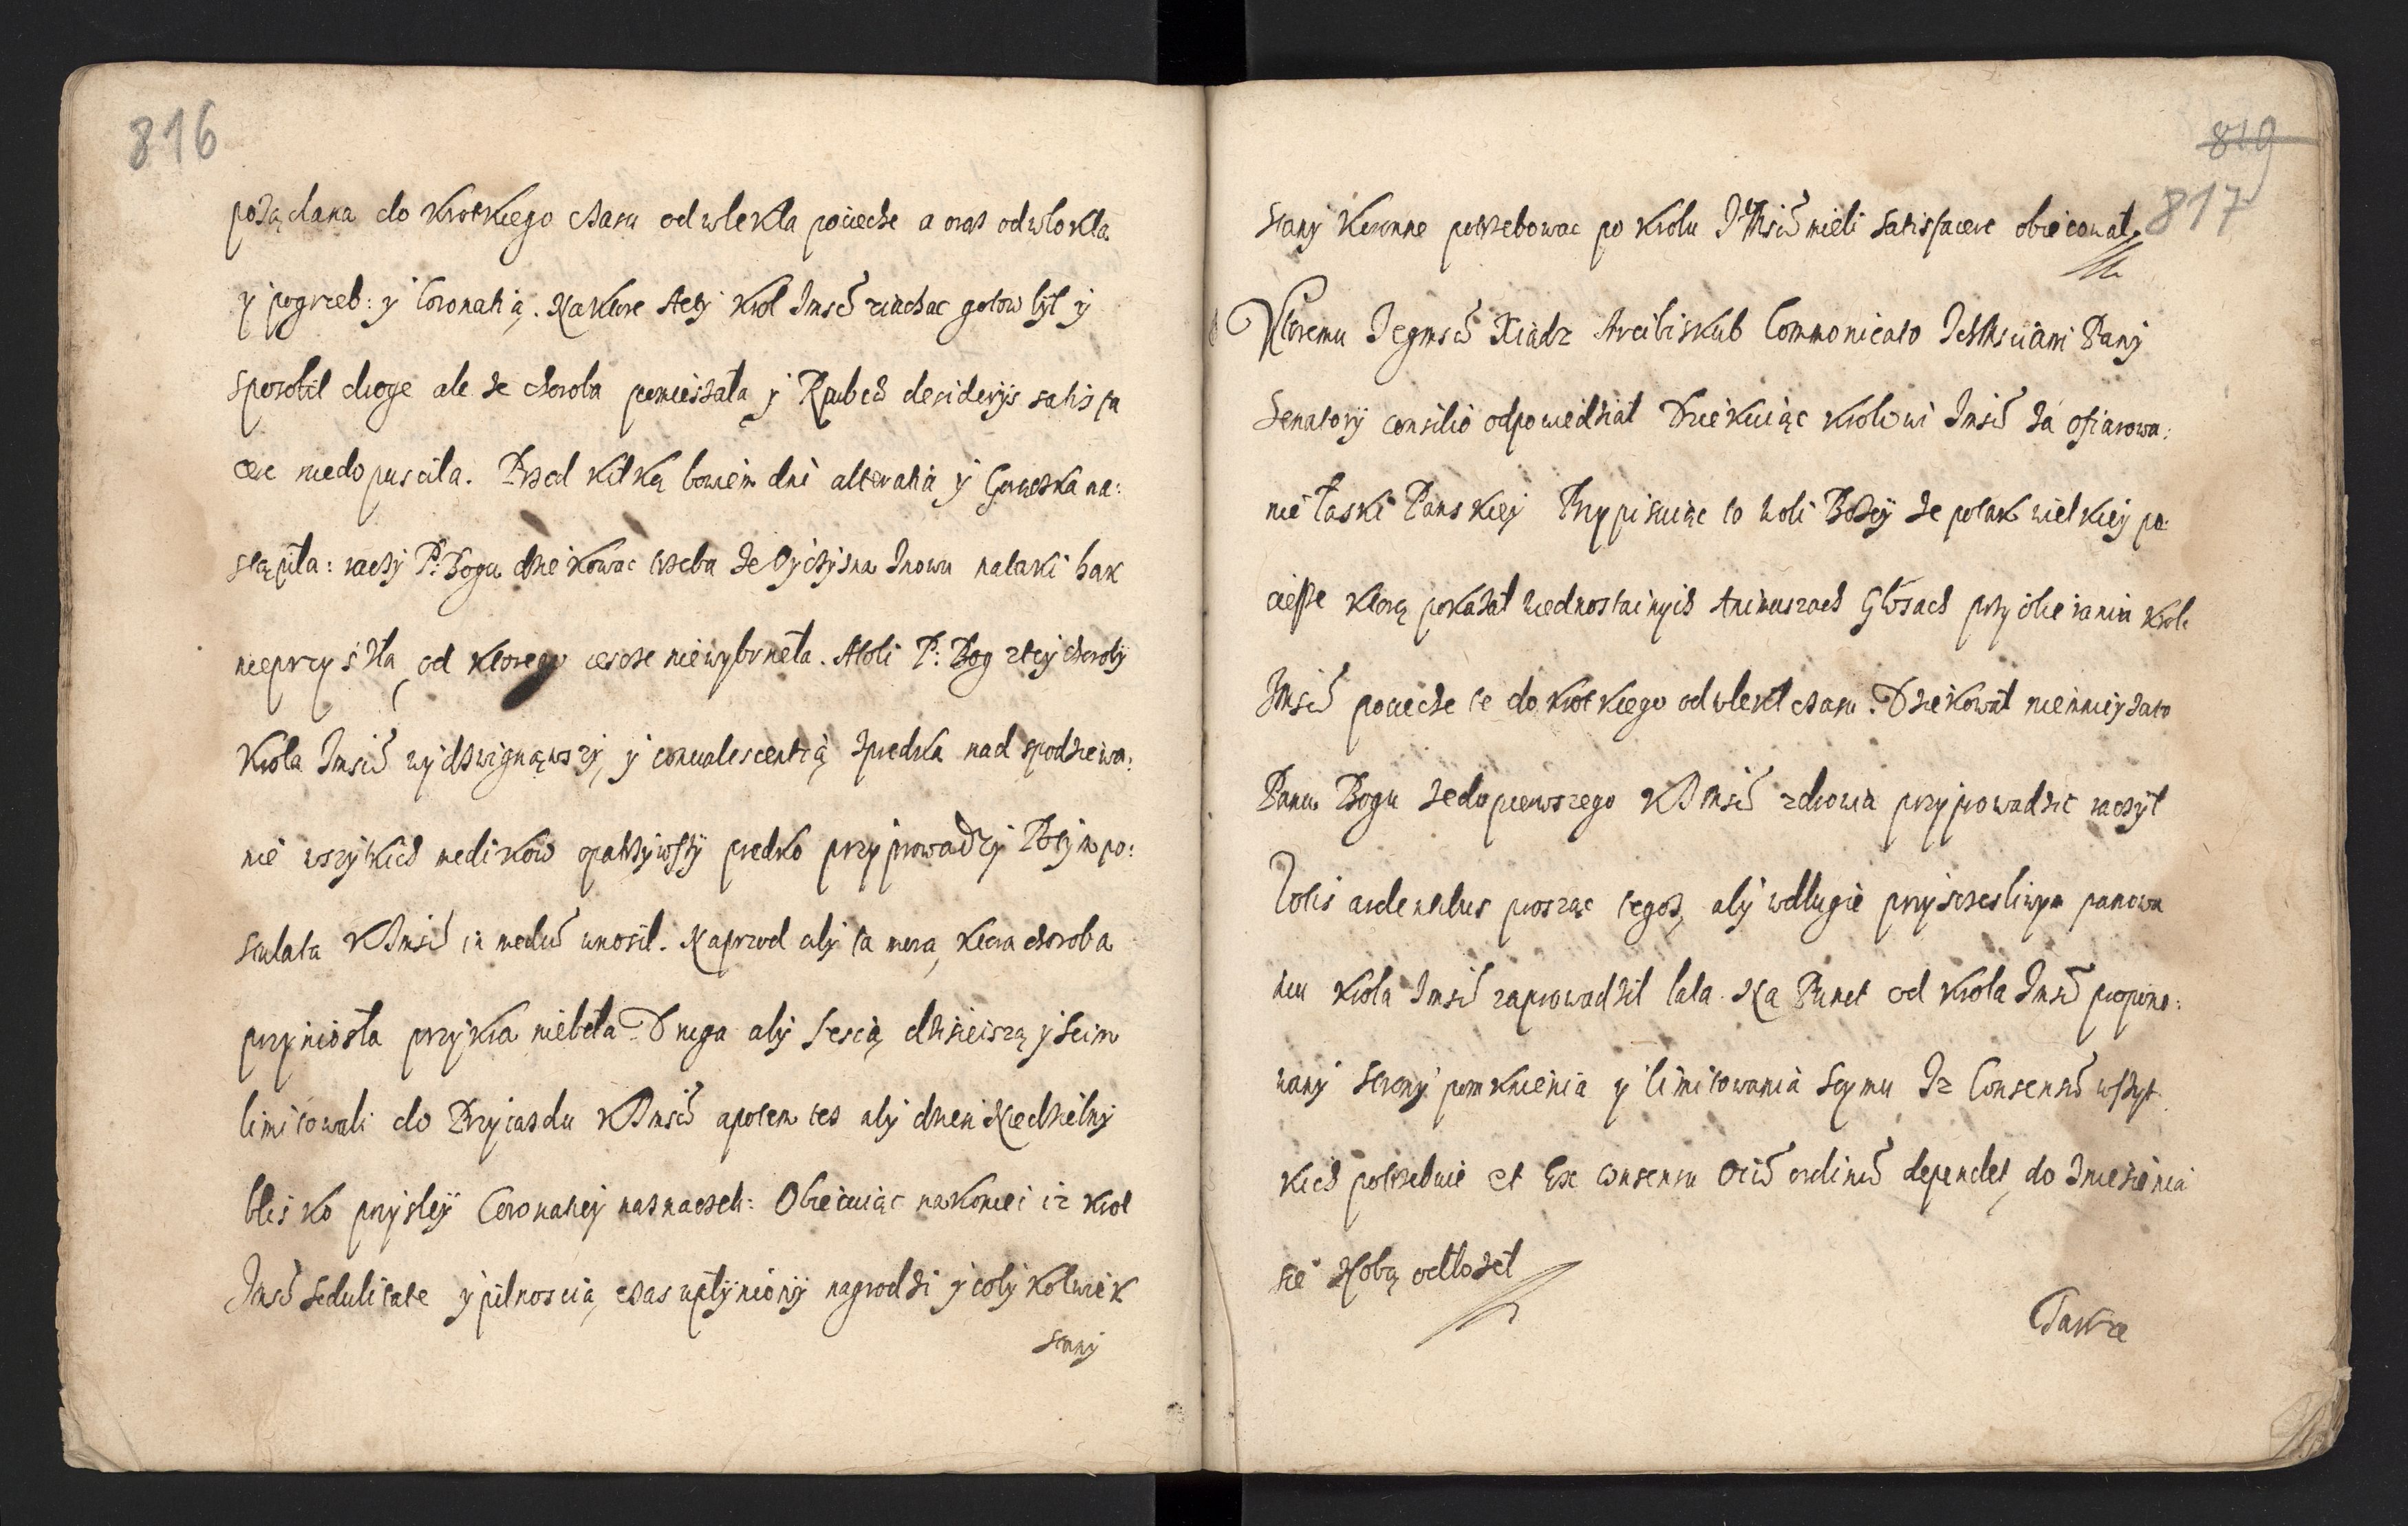 816
poządana do krotkiego czasu odwlekła pociechę a oraz odwlokła
y pogrzeb: y Coronatią. Na ktore Acty Krol Jmsć ziachac gotow był y
sporobil droge ale ze choroba pomieszała y Rzpubcy desiderijs satisfa
cere niedopuscila. Przed kilką bowiem dni alteratia y Gorączka na:
stąpiła: raczy P: Bogu dziekowac trzeba ze Oyczyzna znowu natraki hak
nieprzyszła, od ktorego ieszcze niewybrneła. Atoli P: Bog ztey choroby
Krola Jmsci wydzwignąwszy, y conualescentią zpredka nad spodziewa:
nie wszytkich medikow opatrzywszy predko przyprowadzy Trzy po:
stulata KJmsci in mediu wnosił. Naprzod aby ta mora, ktora choroba
przyniosła przykra niebeła Druga aby sescią dzisieiszą y Seim
limitowali do Przyiazdu KJmsci apotem tez aby dzien Niedzielny
blisko przysley Coronatiey naznaczeli: Obiecuiąc nakoniec iz Krol
Jmsć sedulitate y pilnoscią, czas upłyniony nagrodzi y coby kolwiek
stany
819
817
Stany Koronne potrzebowac po Krolu JMsci mieli satisfacere obiecował.
Ktoremu Jegmsć Xiądz Arcibiskub Commonicato IchMsciami Pany
Senatory consilio odpowiedział Dziekuiąc Krolowi Jmsci za ofiarowa:
nie łaski Panskiey Przypisuiąc to woli Bozey ze potak wielkiey po:
ciesse ktorą pokazał wiednostainych Animuszach Głosach przy obieraniu Krola
JMsci pocieche te do krotkiego odwlekł czasu. Dziekował niemniey zato
Panu Bogu zedopierwszego KJMsci zdrowia przyprowadzic raczył
Votis ardentibus prosząc tegoz, aby wdługie przy sczesliwym panowa
niu Krola Jmsci zaprowadził lata. Na Punct od Krola Jmsci propono:
wany strony pomknienia y limitowania Seymu Iz Consensu wszyt
kich potrzebuie et Ex consensu oiu ordinu dependet, do Zniesienia
sie zsobą odłozeł
Takze